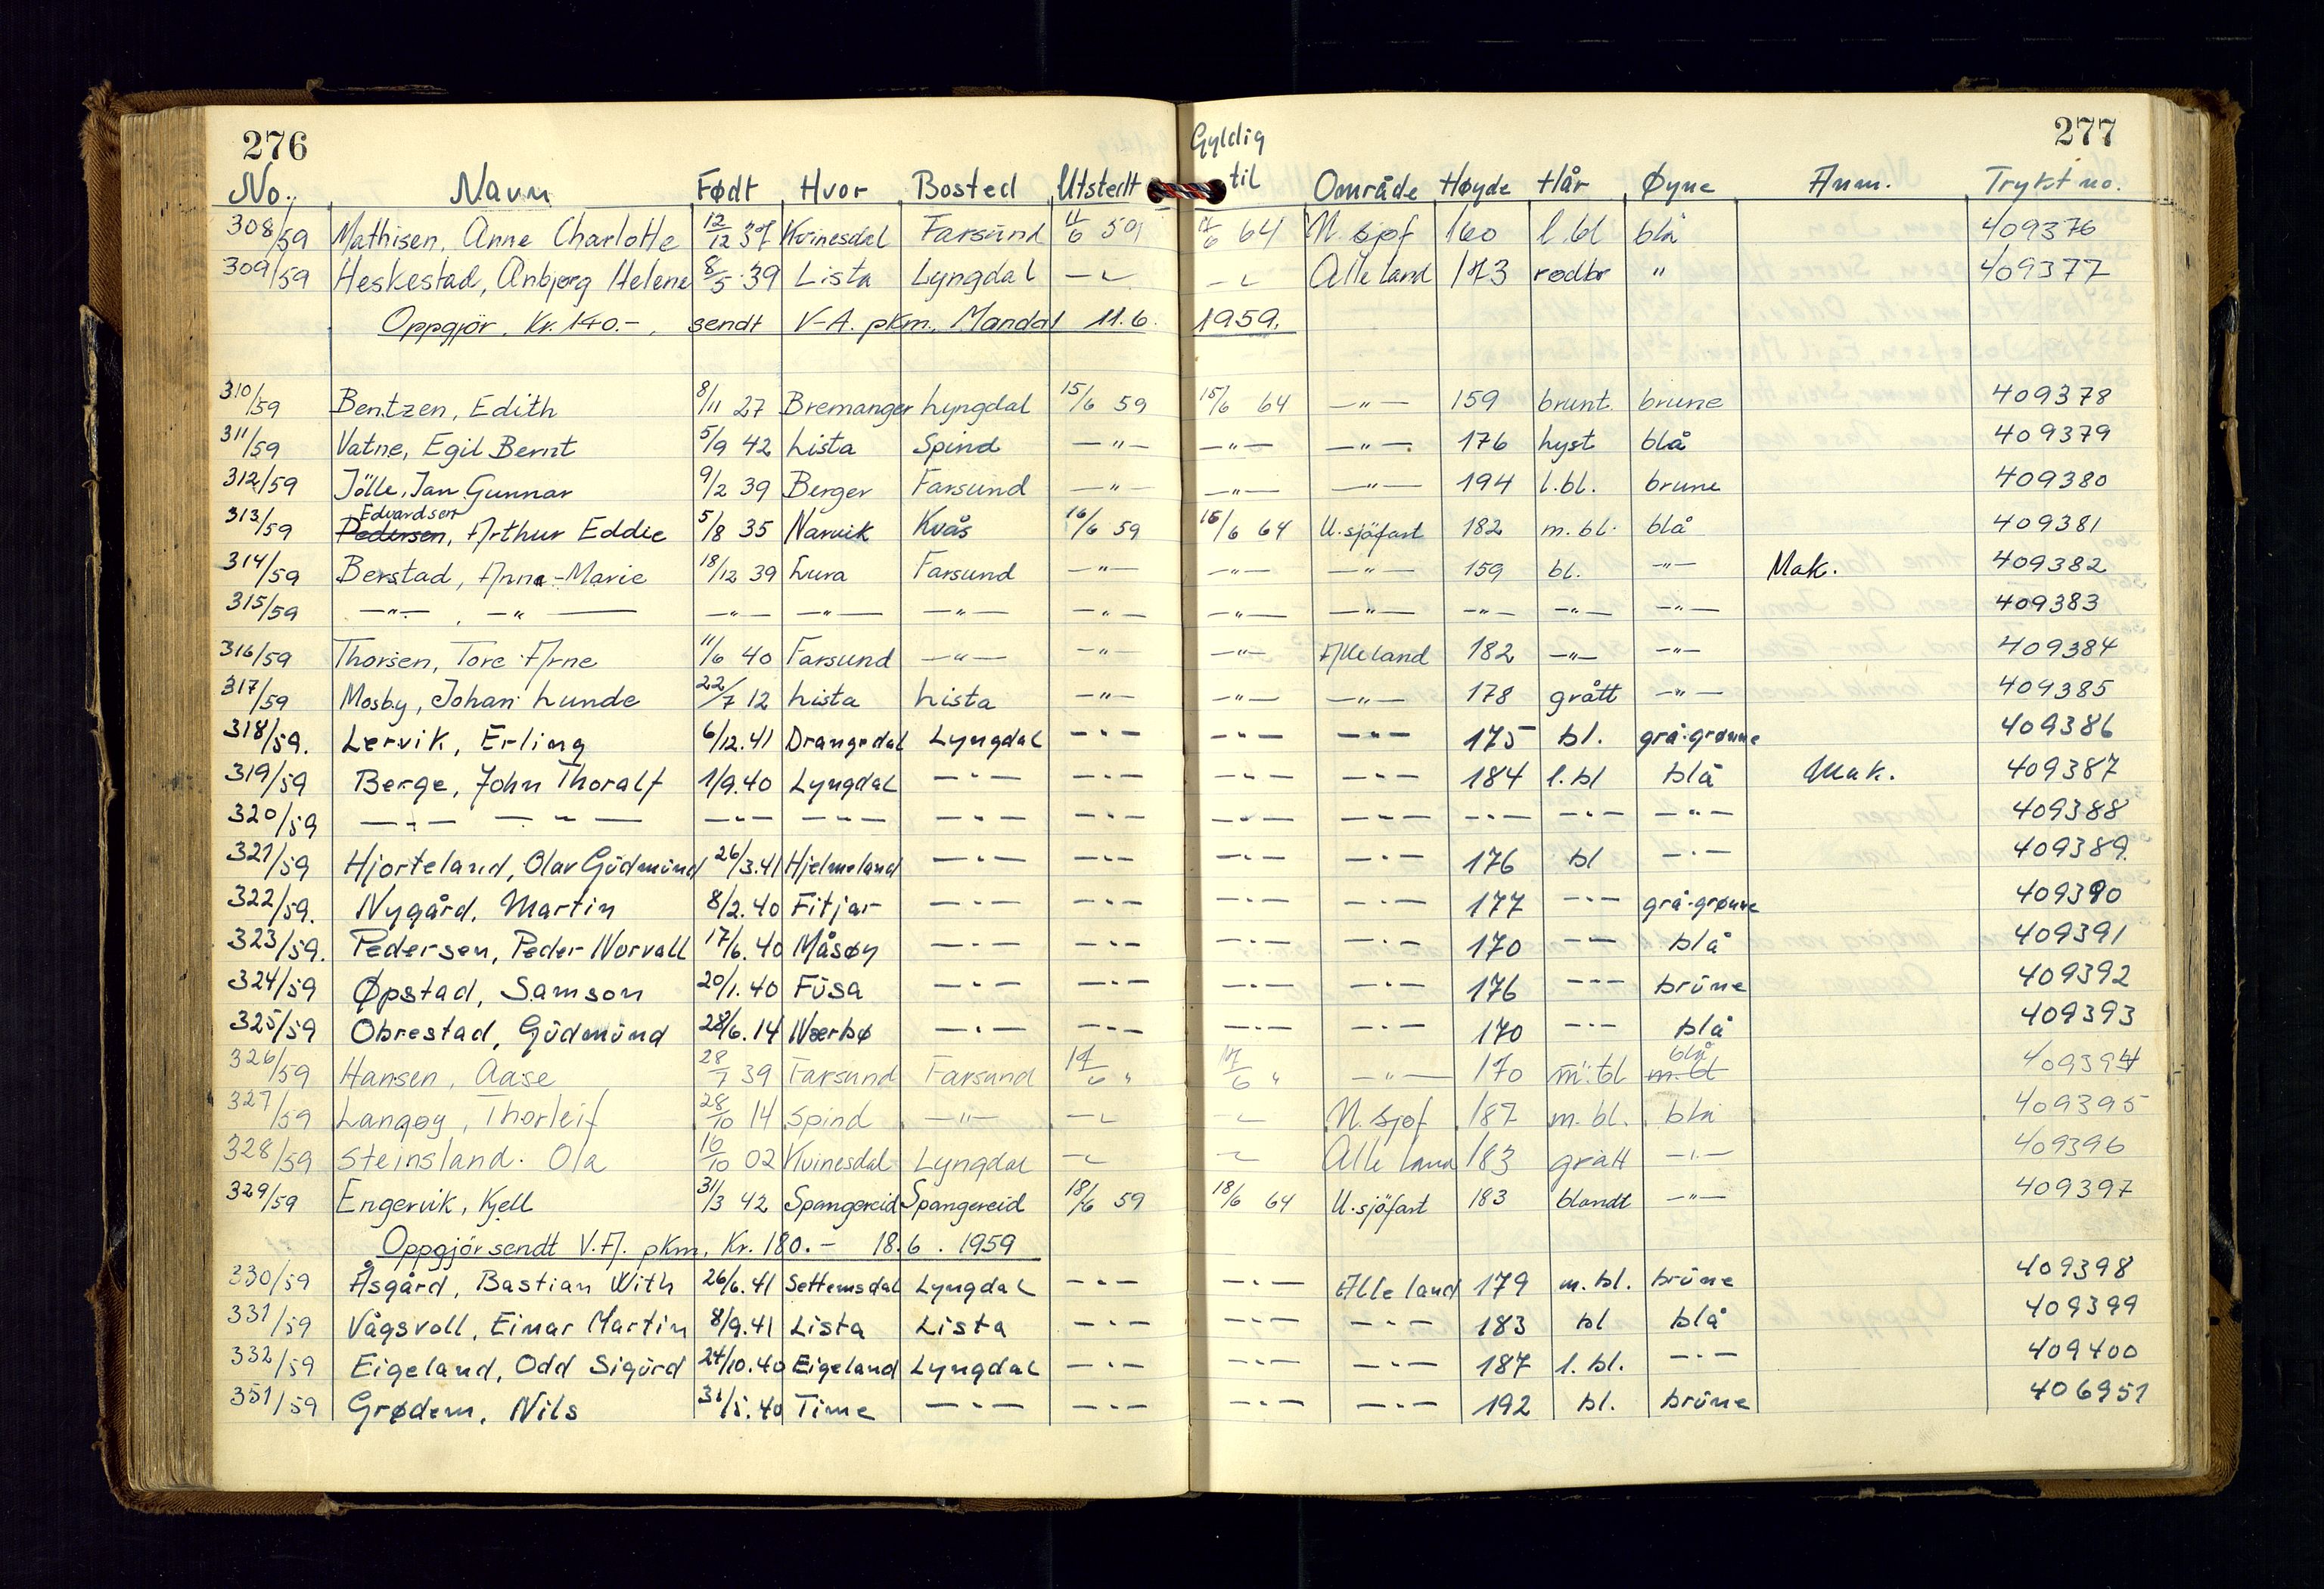 276 277
Gyldig
No. Navn Født Hvor Bosted Utstedt til Område Høyde Hår Øyne Anm. Trykt no.
308/59 Mathisen, Anne Charlotte 12/12 37 Kvinesdal Farsund 11/6 59 11/6 64 U. sjøf 160 l. bl blå 409376
309/59 Heskestad, Anbjørg Helene 8/5 39 Lista Lyngdal — " — " Alle land 173 rødbr " 409377
Oppgjör, Kr. 140.-, sendt V-A. pkm. Mandal 11.6. 1959.
310/59 Bentzen, Edith 8/11 27 Bremanger Lyngdal 15/6 59 15/6 64 — " — 159 brunt. brune 409378
311/59 Vatne, Egil Bernt 5/9 42 Lista Spind — " — — " — — " — 176 lyst blå 409379
312/59 Jölle, Jan Gunnar 9/2 39 Berger Farsund — " — — " — — " — 194 l.bl. brune 409380
Edvardsen
313/59 Pedersen, Arthur Eddie 5/8 35 Narvik Kvås 16/6 59 16/6 64 U. sjöfart 182 m. bl. blå 409381
314/59 Berstad, Anna-Marie 18/12 39 Lura Farsund — " — — " — — " — 159 bl. — " — Mak. 409382
315/59 — " — , — " — — " — — " — — " — — " — — " — — " — — " — — " — — " — 409383
316/59 Thorsen, Tore Arne 11/6 40 Farsund — " — — " — — " — Alle land 182 — " — — " — 409384
317/59 Mosby, Johan Lunde 22/7 12 Lista Lista — " — — " — — " — 178 grått — " — 409385
318/59. Lervik, Erling 6/12.41 Drangedal Lyngdal — " — — " — — " — 175 bl. grå-grønne 409386
319/59 Berge, John Thoralf 1/9.40 Lyngdal — " — — " — — " — — " — 184 l. bl blå Mak. 409387
320/59 — " — — " — — " — — " — — " — — " — — " — — " — — " — — " — — " — 409388
321/59 Hjorteland, Olav Gudmund 26/3.41 Hjelmeland — " — — " — — " — — " — 176 bl — " — 409389.
322/59. Nygård, Martin 8/2.40 Fitjar — " — — " — — " — — " — 177 — " — grå-grønne 409390
323/59. Pedersen, Peder Norvall 17/6.40 Måsøy — " — — " — — " — — " — 170 — " — blå 409391
324/59 Øpstad, Samson 20/1.40 Fusa — " — — " — — " — — " — 176 — " — brune 409392
325/59 Obrestad, Gudmund 28/6.14 Nærbø — " — — " — — " — — " — 170 — " — blå 409393
blå
326/59 Hansen, Aase 28/7 39 Farsund Farsund 17/6 " 17/6 " — " — 170 m. bl m. bl 409394
327/59 Langøy, Thorleif 28/10 14 Spind — " — — " — " U. sjøf 187 m. bl. blå 409395
328/59 Steinsland. Ola 10/10 02 Kvinesdal Lyngdal — " — " Alle land 183 grått — " — 409396
329/59 Engervik, Kjell 31/3 42 Spangereid Spangereid 18/6 59 18/6 64 U. sjöfart 183 blandt — " — 409397
Oppgjör sendt V.A. pkm, Kr. 180.- 18.6. 1959
330/59 Åsgård, Bastian With 26/6.41 Settemsdal Lyngdal — " — — " — Alle land 179 m. bl. brune 409398
331/59 Vågsvoll, Einar Martin 8/9.41 Lista Lista — " — — " — — " — 183 bl blå 409399
332/59 Eigeland, Odd Sigurd 24/10.40 Eigeland Lyngdal — " — — " — — " — 187 l. bl. — " — 409400
351/59 Grødem, Nils 31/5.40 Time — " — — " — — " — — " — 192 bl. brune 406951